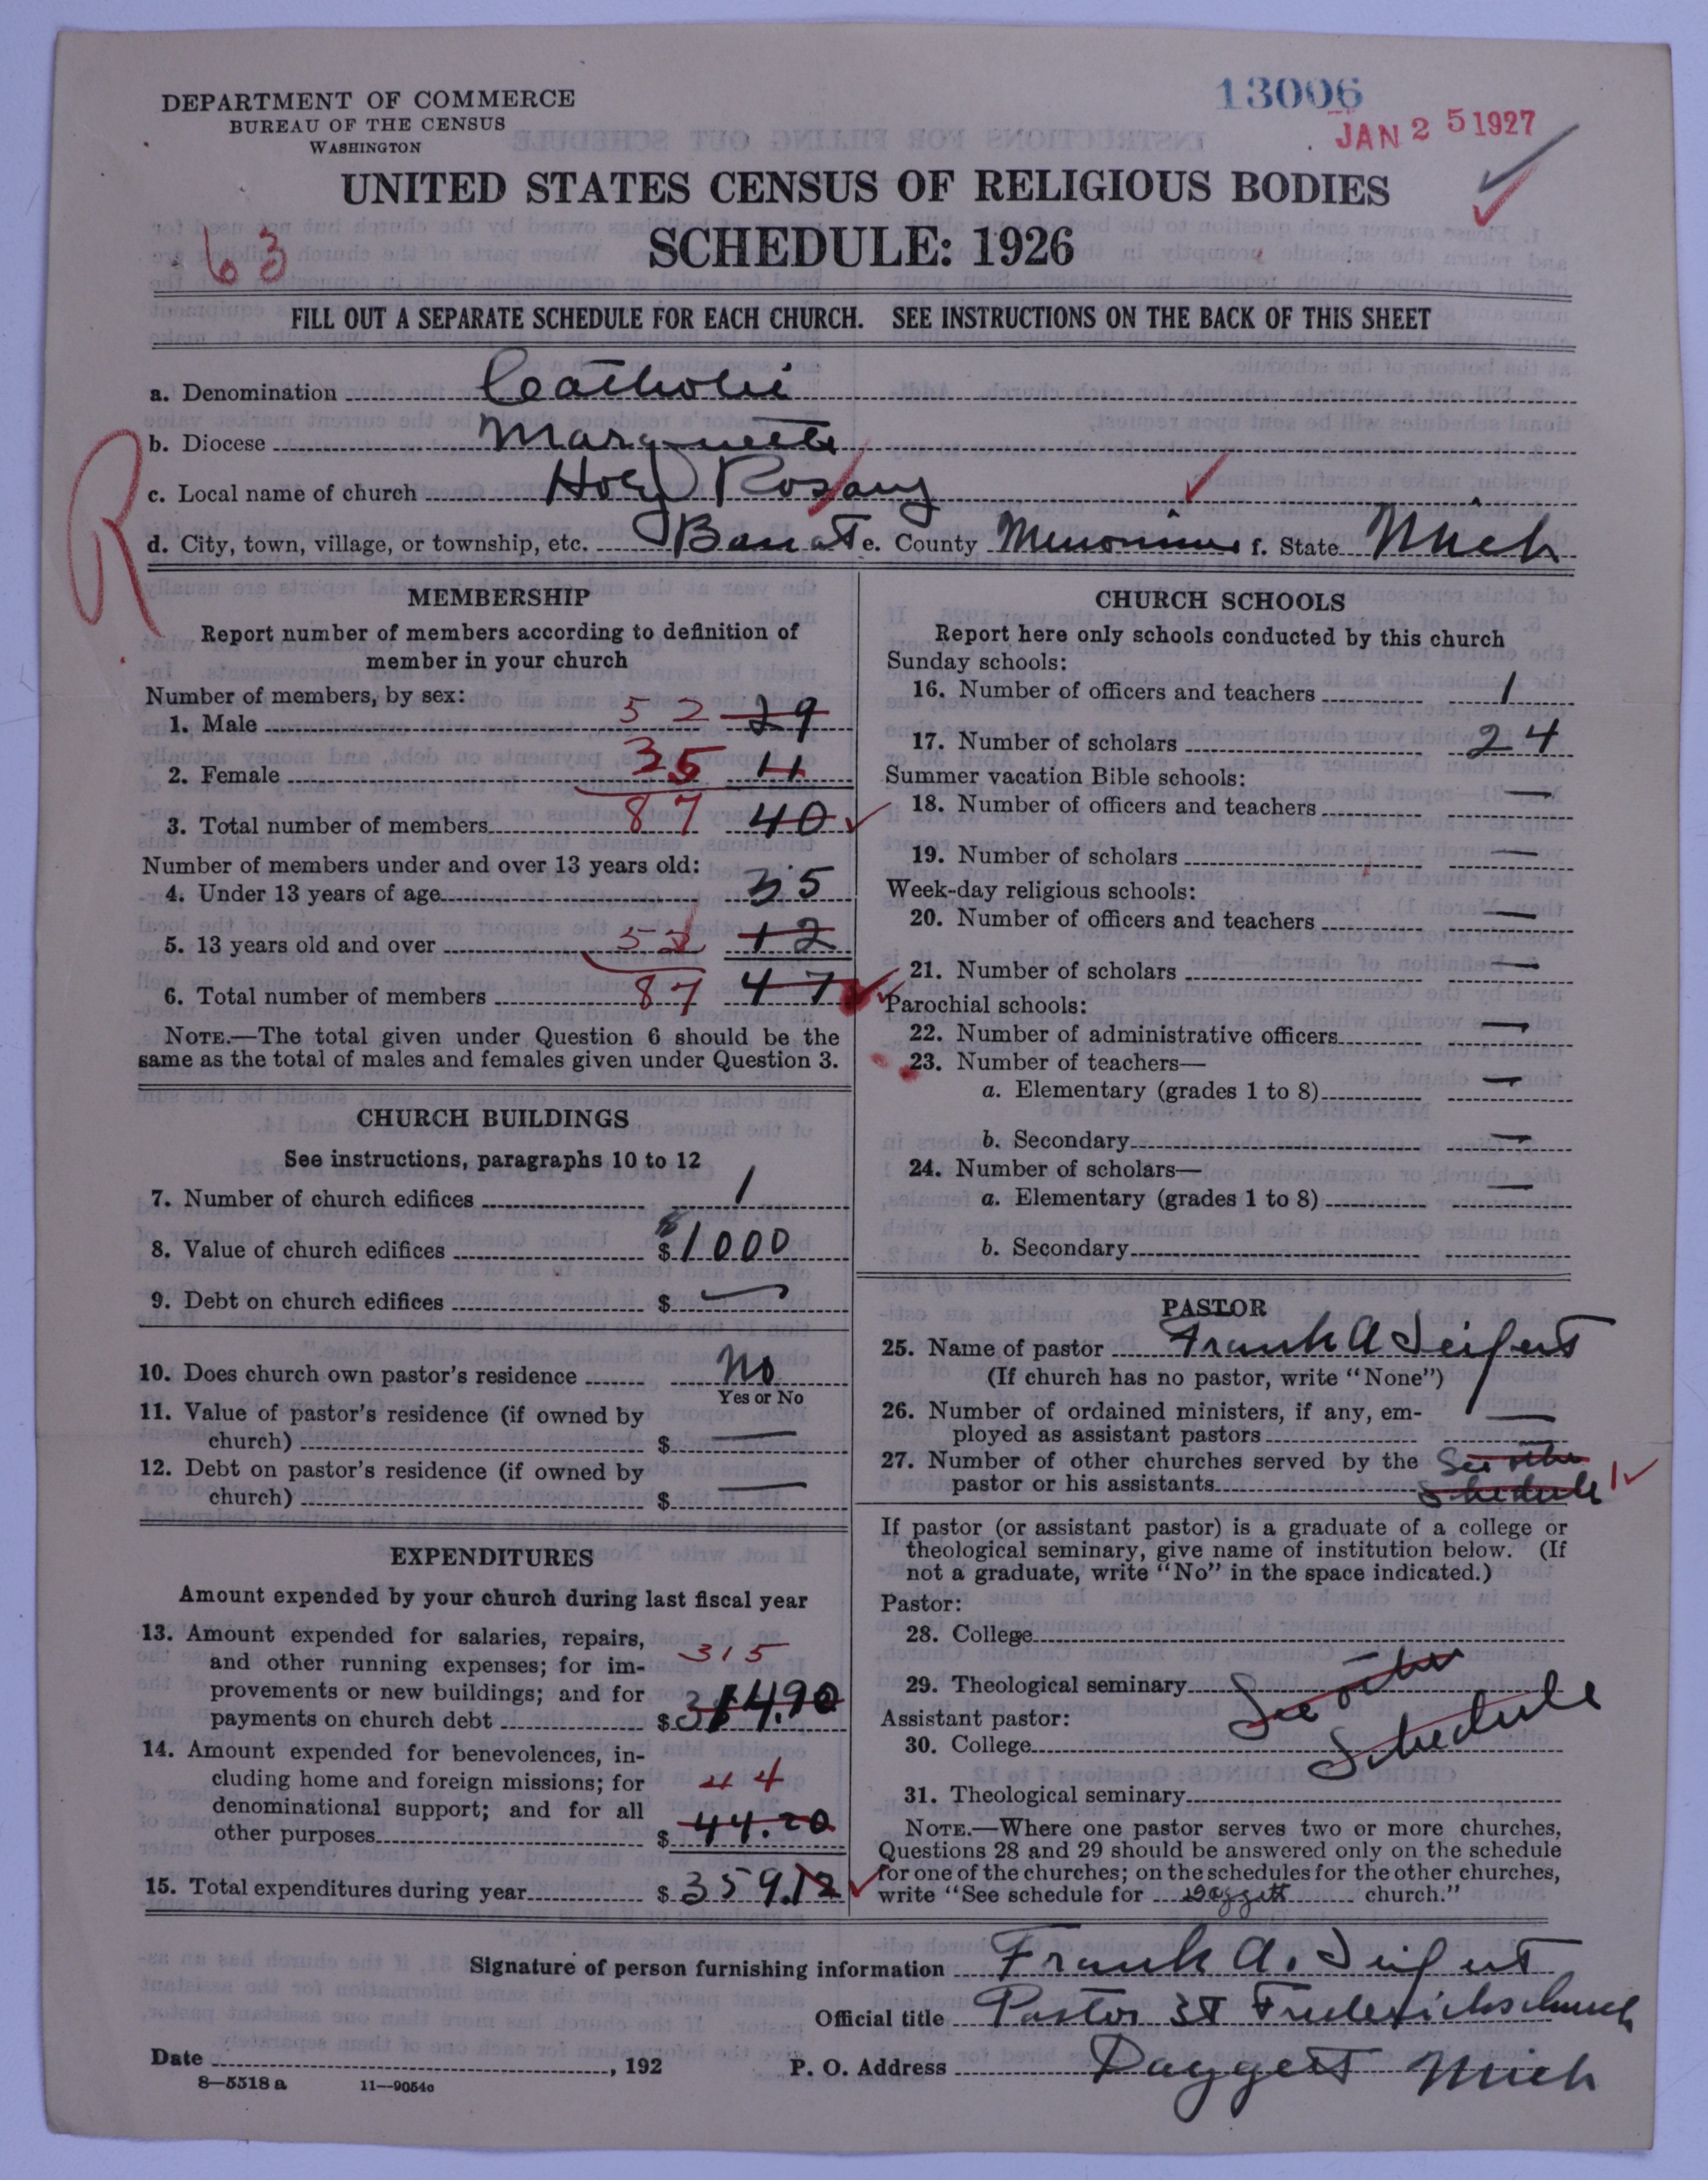 DEPARTMENT OF COMMERCE
BUREAU OF THE CENSUS
WASHINGTON
13006
JAN 25 1927
UNITED STATES CENSUS OF RELIGIOUS BODIES
SCHEDULE: 1926
63
FILL OUT A SEPARATE SCHEDULE FOR EACH CHURCH. SEE INSTRUCTIONS ON THE BACK OF THIS SHEET
a. Denomination Catholic
b. Diocese Marquette
c. Local name of church Holy Rosary
R
d. City, town, village, or township, etc. Banat e. County Menominee f. State Mich
MEMBERSHIP
Report number of members according to definition of
member in your church
Number of members, by sex:
1. Male 52 29
2. Female 35 11
3. Total number of members 87 40
Number of members under and over 13 years old:
4. Under 13 years of age 35
5. 13 years old and over 52 12
6. Total number of members 87 47
NOTE.—The total given under Question 6 should be the
same as the total of males and females given under Question 3.
CHURCH BUILDINGS
See instructions, paragraphs 10 to 12
7. Number of church edifices 1
8. Value of church edifices $1000
9. Debt on church edifices $ —
10. Does church own pastor's residence No
Yes or No
11. Value of pastor's residence (if owned by
church) $ —
12. Debt on pastor's residence (if owned by
church) $ —
EXPENDITURES
Amount expended by your church during last fiscal year
13. Amount expended for salaries, repairs,
and other running expenses; for im-
provements or new buildings; and for
payments on church debt 315 $314.90
14. Amount expended for benevolences, in-
cluding home and foreign missions; for
denominational support; and for all
other purposes 44 $44.20
15. Total expenditures during year $359.12
CHURCH SCHOOLS
Report here only schools conducted by this church
Sunday schools:
16. Number of officers and teachers 1
17. Number of scholars 24
Summer vacation Bible schools:
18. Number of officers and teachers —
19. Number of scholars —
Week-day religious schools:
20. Number of officers and teachers —
21. Number of scholars —
Parochial schools:
22. Number of administrative officers —
23. Number of teachers—
a. Elementary (grades 1 to 8) —
b. Secondary —
24. Number of scholars—
a. Elementary (grades 1 to 8) —
b. Secondary
PASTOR
25. Name of pastor Frank A Seifert
(If church has no pastor, write "None")
26. Number of ordained ministers, if any, em-
ployed as assistant pastors —
27. Number of other churches served by the See other
pastor or his assistants Schedule 1
If pastor (or assistant pastor) is a graduate of a college or
theological seminary, give name of institution below. (If
not a graduate, write "No" in the space indicated.)
Pastor:
28. College
29. Theological seminary See other
Assistant pastor:
30. College Schedule
31. Theological seminary
NOTE.—Where one pastor serves two or more churches,
Questions 28 and 29 should be answered only on the schedule
for one of the churches; on the schedules for the other churches,
write "See schedule for Daggett church."
Signature of person furnishing information Frank A. Seifert
Official title Pastor St Fredericks church
Date , 192
P. O. Address Daggett Mich
8—5518 a 11—9054o